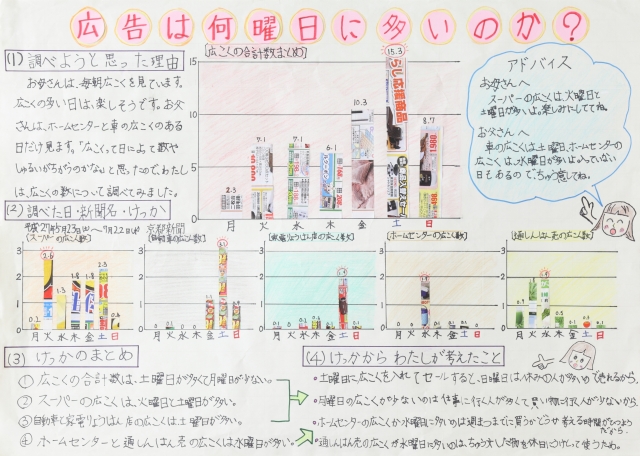 広告は何曜日に多いのか？
(1) 調べようと思った理由
お母さんは、毎朝広こくを見ています。
広こくの多い日は、楽しそうです。お父
さんは、ホームセンターと車の広こくのある
日だけ見ます。「広こくって日によって数や
しゅるいがちがうのかな」と思ったのでわたし
は、広こくの数について調べてみました。
(2) 調べた日・新聞名・けっか
京都新聞
[広こくの合計数まとめ]
15
10
5
0
2.3
7.1
7.1
6.1
10.3
15.3
8.7
月 火 水 木 金 土 日
アドバイス
お母さんへ
スーパーの広こくは、火曜日と
土曜日が多いよ。楽しみにしててね。
お父さんへ
車の広こくは土曜日、ホームセンターの
広こくは、水曜日が多いよ。入っていない
日もあるので、ちゅう意してね。
[スーパーの広こく数]
3
2
1
0
月 火 水 木 金 土 日
3
2
1
0
月 火 水 木 金 土 日
3
2
1
0
月 火 水 木 金 土 日
[ホームセンターの広こく数]
3
2
1
0
月 火 水 木 金 土 日
[通しんはん売の広こく数]
3
2
1
0
月 火 水 木 金 土 日
(3) けっかのまとめ
① 広こくの合計数は、土曜日が多くて月曜日が少ない。
② スーパーの広こくは、火曜日と土曜日が多い。
③ 自動車と家電りょうはん店の広こくは、土曜日が多い。
④ ホームセンターと通しんはん売の広こくは水曜日が多い。
(4) けっかからわたしが考えたこと
・土曜日に広こくを入れてセールすると、日曜日は休みの人が多いので売れるから。
・月曜日の広こくが少ないのは仕事に行く人が多くて買い物に行く人が少ないから。
・ホームセンターの広こくが水曜日に多いのは週まつまでに買うかどうか考える時間がとつよう
だから。
・通しんはん売の広こくが水曜日に多いのは、ちゅう文した物を休日にうけとって使うため。